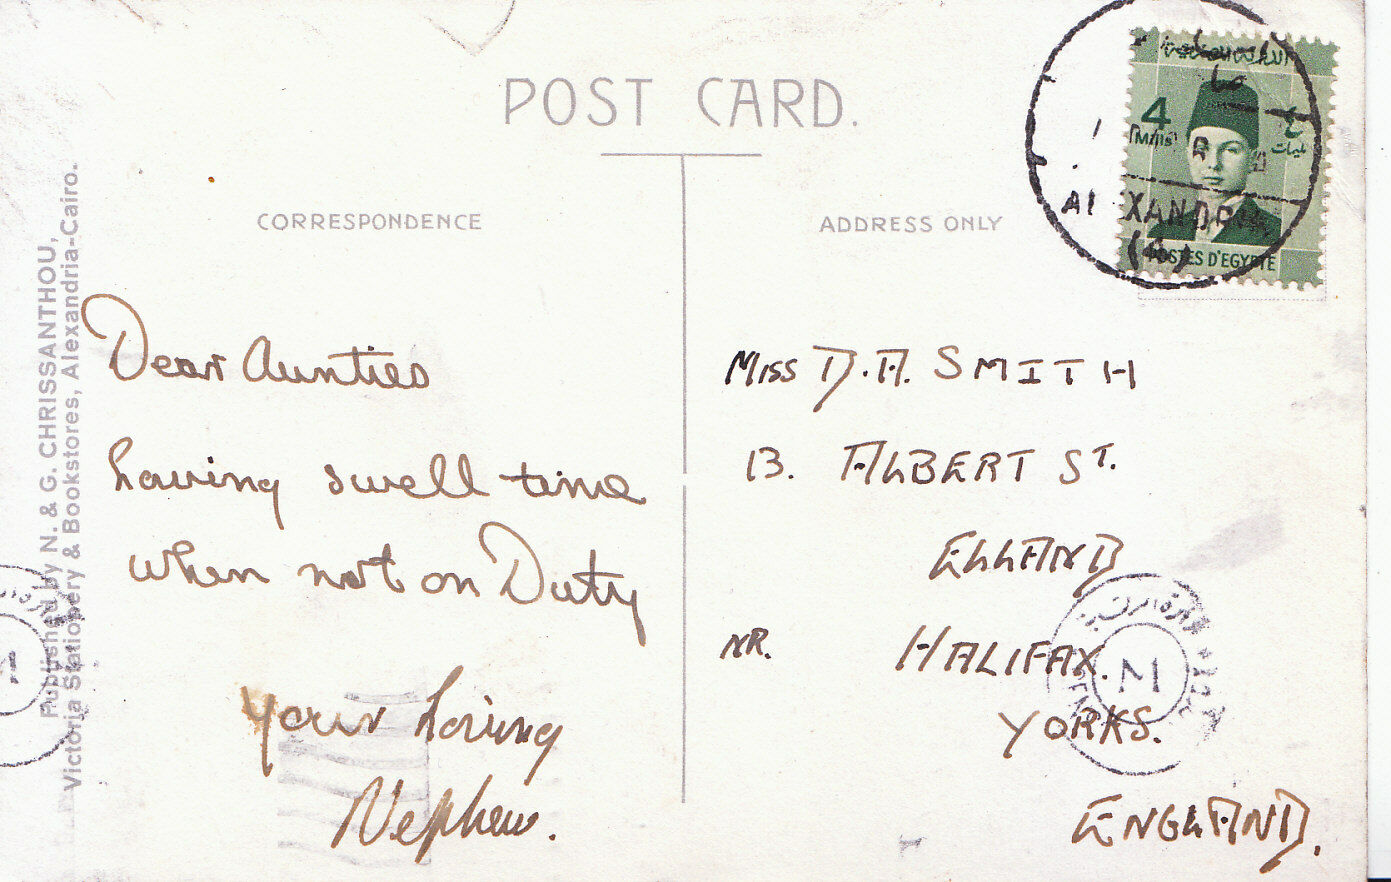 POST CARD.
CORRESPONDENCE
ADDRESS ONLY
Published by N. & G. CHRISSANTHOU,
Victoria Stationery & Bookstores, Alexandria-Cairo.
Dear Aunties
having swell time
when not on Duty
your loving
Nephew.
MISS D.A. SMITH
13. ALBERT ST.
ELLAND
NR. HALIFAX.
YORKS.
ENGLAND.
4
Mills
مليمات
POSTES D'EGYPTE
AL XANDRIA